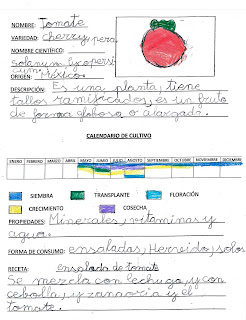 NOMBRE: Tomate
VARIEDAD: cherry, pera
NOMBRE CIENTÍFICO:
Solanum lycopersi
cum
ORIGEN: México.
DESCRIPCIÓN: Es una planta, tiene
tallos ramificados, es un fruto
de forma globosa o alargada.
CALENDARIO DE CULTIVO
ENERO FEBRERO MARZO ABRIL MAYO JUNIO JULIO AGOSTO SEPTIEMBRE OCTUBRE NOVIEMBRE DICIEMBRE
SIEMBRA TRASPLANTE FLORACIÓN
CRECIMIENTO COSECHA
PROPIEDADES: Minerales, vitaminas y
agua.
FORMA DE CONSUMO: ensaladas, Hervido, solos
RECETA: ensalada de tomate
Se mezcla con lechuga, y con
cebolla, y zanaoria y el
tomate.